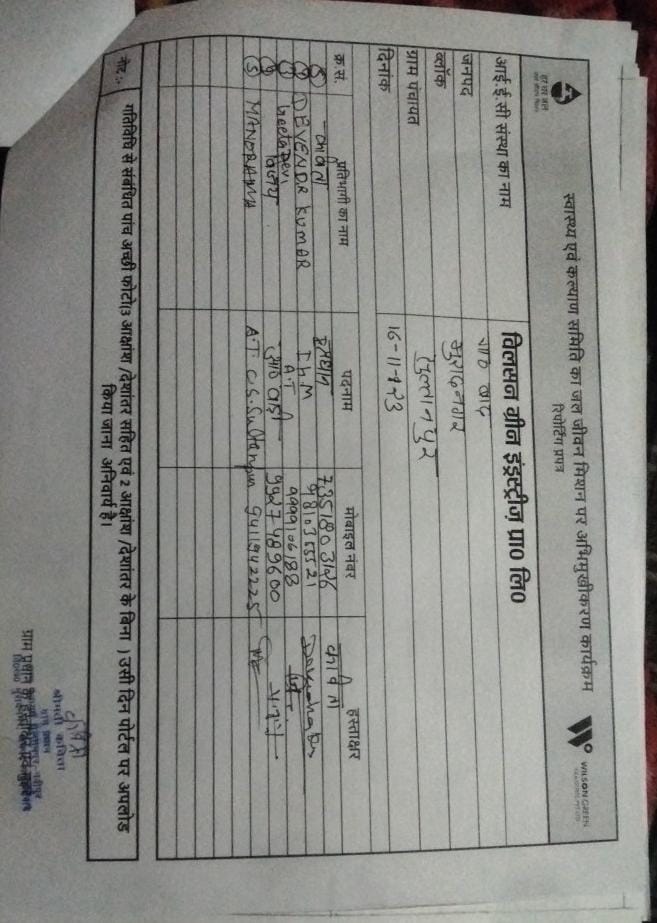 हर घर जल
जल जीवन मिशन
स्वास्थ्य एवं कल्याण समिति का जल जीवन मिशन पर अभिमुखीकरण कार्यक्रम
रिपोर्टिंग प्रपत्र
WILSON GREEN
आई.ई.सी संस्था का नाम विलसन ग्रीन इंडस्ट्रीज़ प्रा० लि०
जनपद
ब्लॉक मुरादनगर
ग्राम पंचायत सुल्तानपुर
दिनांक 16-11-23
क्र.स. प्रतिभागी का नाम पदनाम मोबाइल नंबर हस्ताक्षर
कविता प्रधान 7351803126 कविता
DEVENDR KUMAR I.H.M 9810355521
Geeta Devi A.T 9999106188
9927489600
5 MANORAMA A.T C.S. Sultanpur 9411942225
नोट :- गतिविधि से संबंधित पांच अच्छी फोटो(3 आक्षांश /देशांतर सहित एवं 2 आक्षांश /देशांतर के बिना ) उसी दिन पोर्टल पर अपलोड
किया जाना अनिवार्य है।
कविता
श्रीमती कविता
ग्राम प्रधान